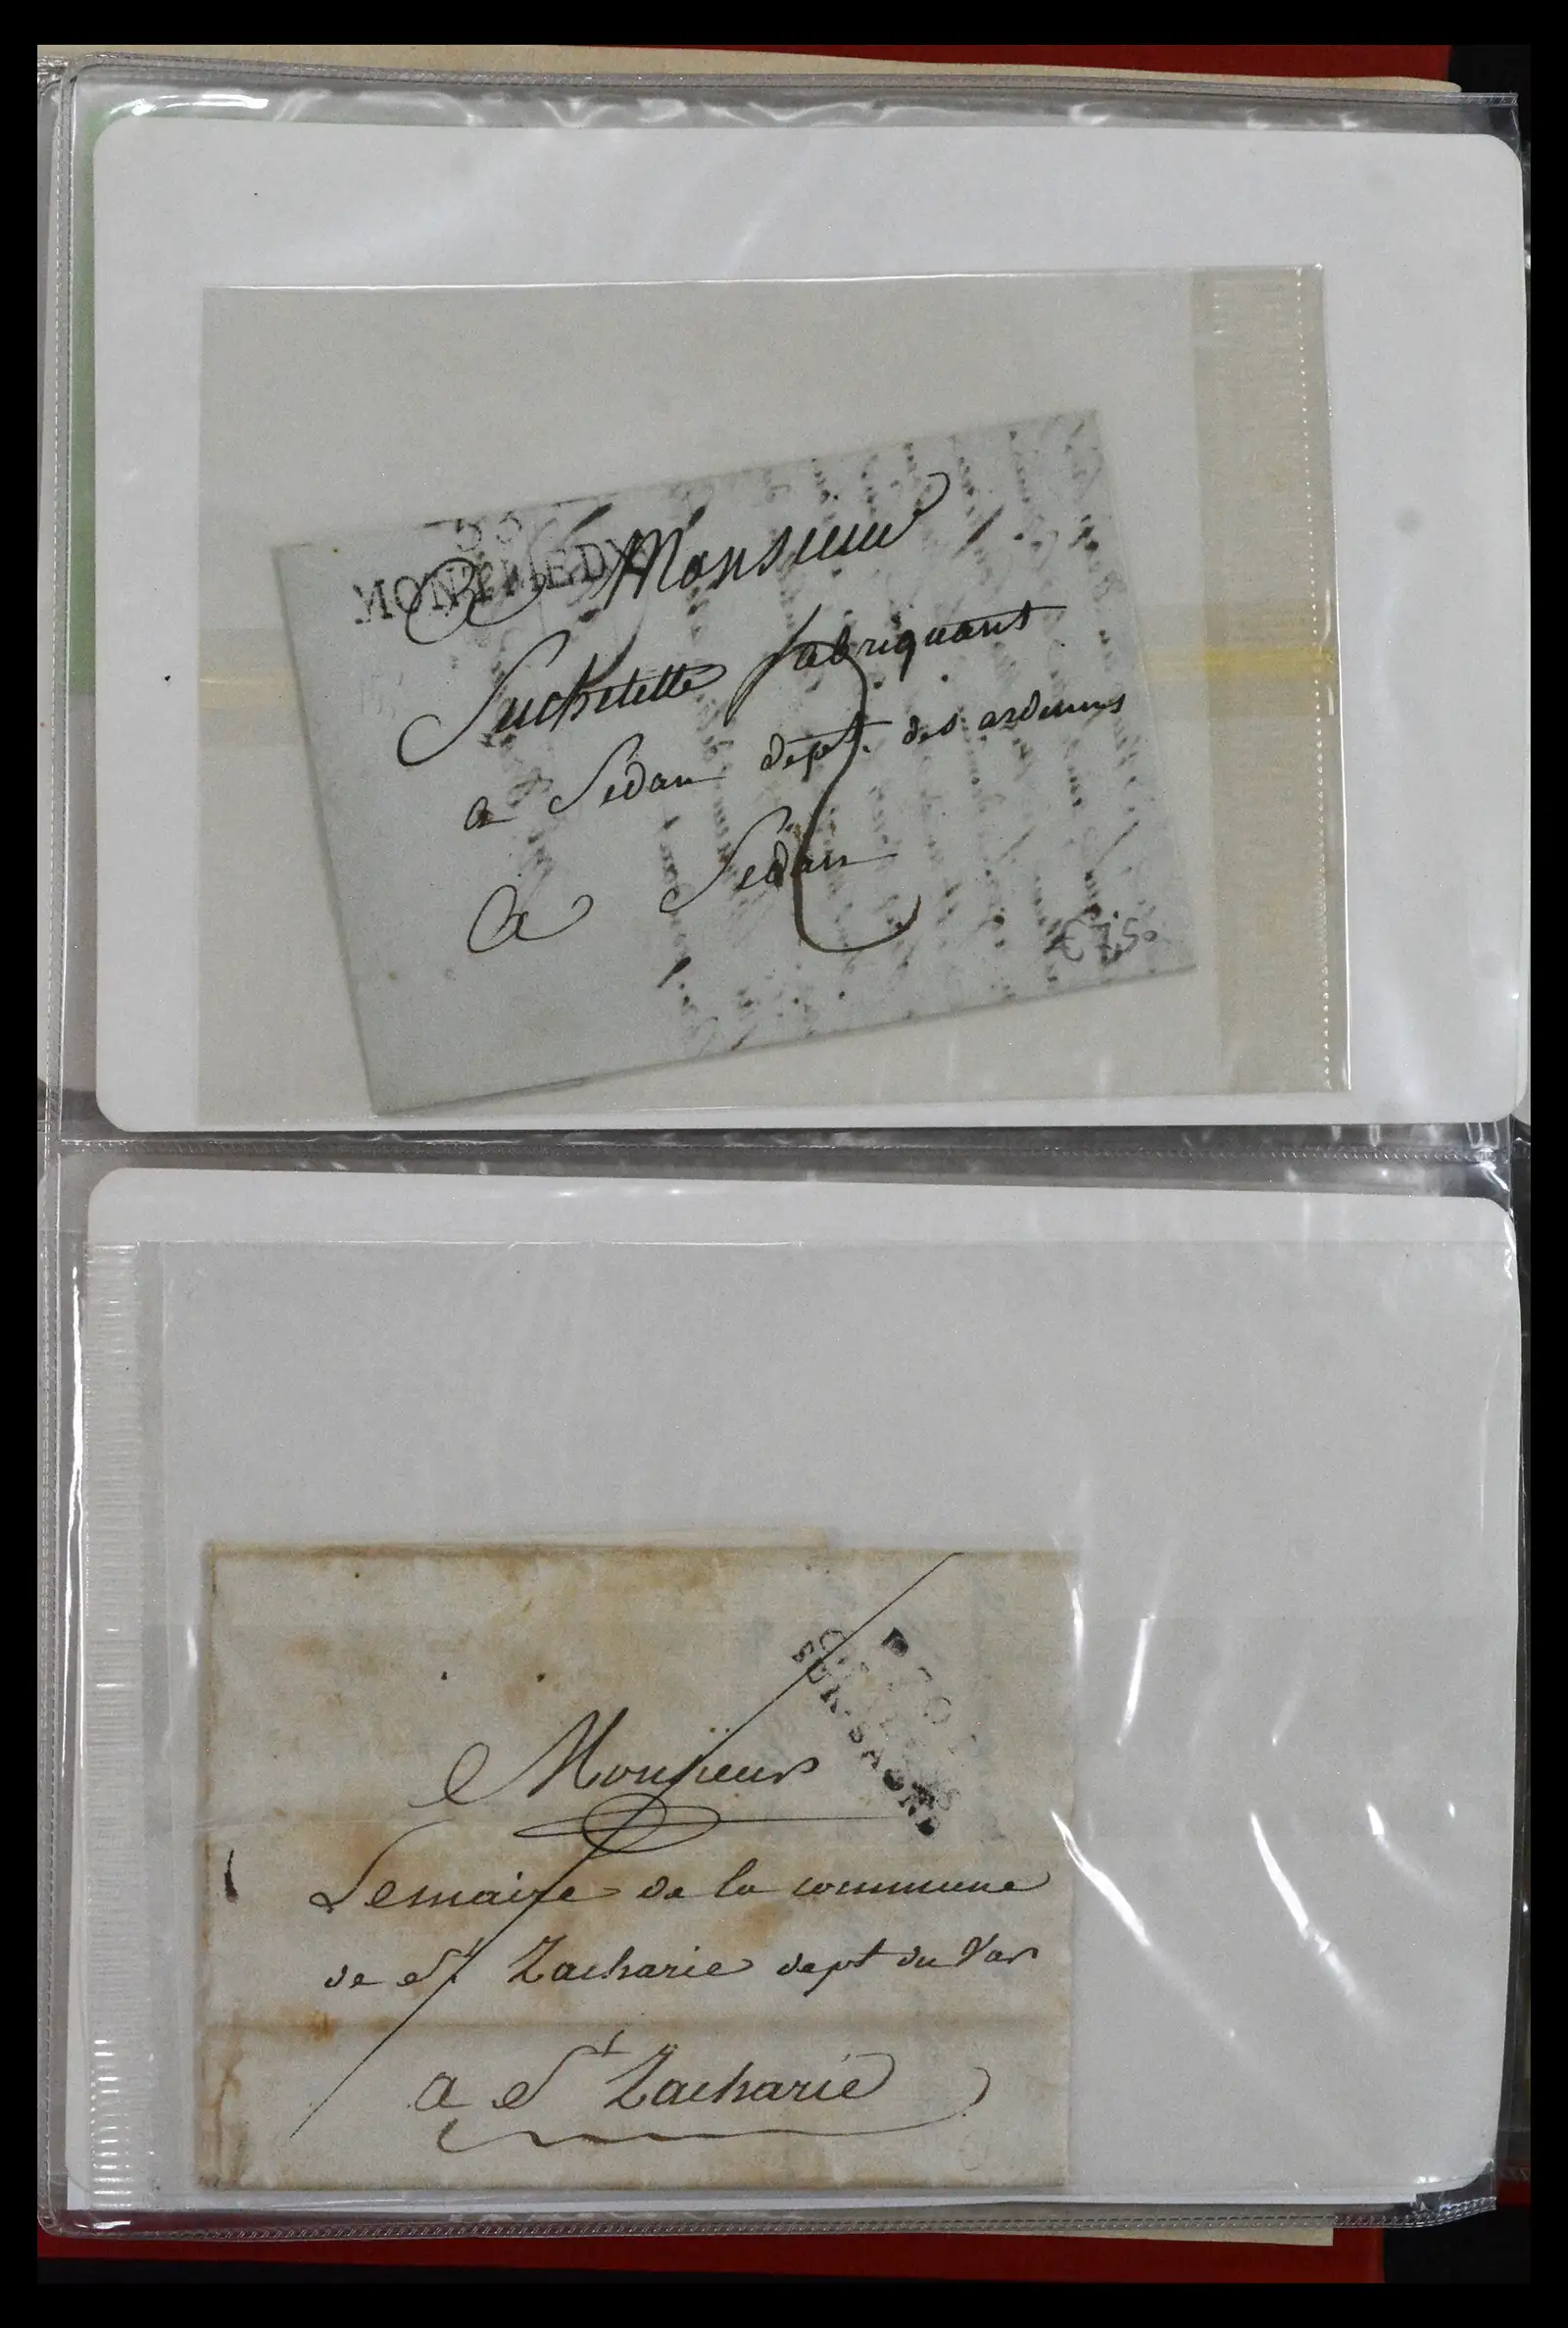 55
MONTMEDY
Monsieur
Suchetette fabriquant
a Sedan dept. des ardennes
a Sedan
€ 15.
P
SUR-SAONE
Monsieur
Lemaire de la commune
de St. Zacharie dept du Var
a St Zacharie